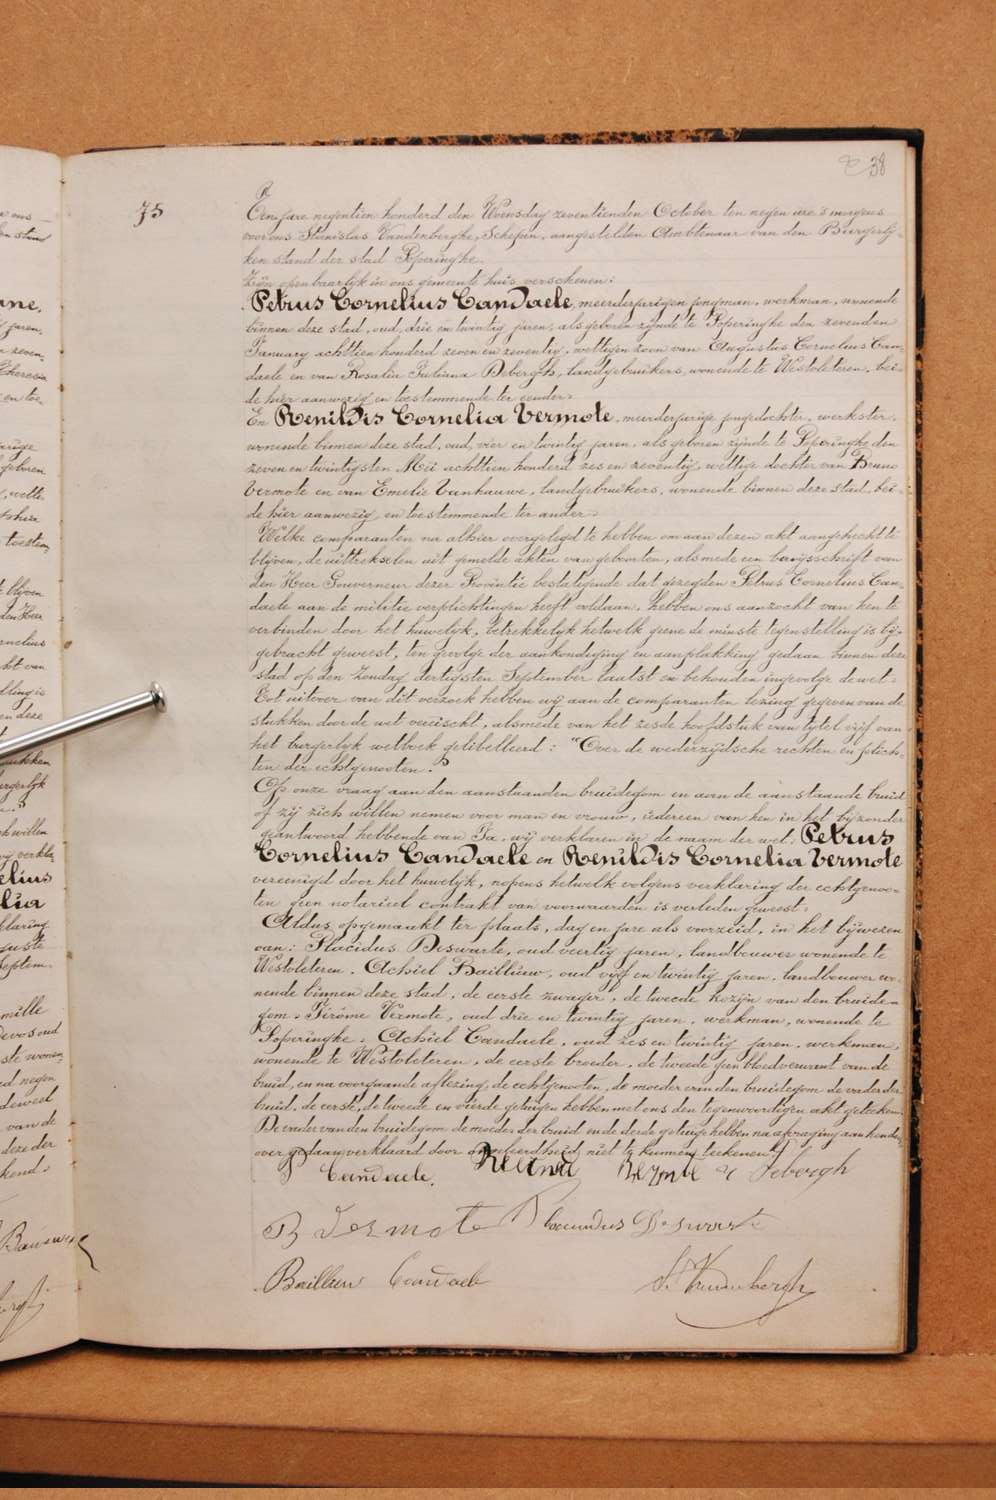 38
75
Ten jare negentien honderd den Woensdag zeventienden October ten negen ure 's morgens
voor ons Stanislas Vandenberghe, Schepen, aangestelden Ambtenaar van den Burgerlij-
ken stand der stad Poperinghe.
Zijn openbaarlijk in ons gemeente huis verschenen:
Petrus Cornelius Candaele, meerderjarigen jongman, werkman, wonende
binnen deze stad, oud, drie en twintig jaren, als geboren zijnde te Poperinghe den zevenden
January achttien honderd zeven en zeventig, wettigen zoon van Augustus Cornelius Can-
daele en van Rosalia Juliana Debergh, landgebruikers, wonende te Westvleteren, bei-
de hier aanwezig en toestemmende ter eender.
En Renildis Cornelia Vermote, meerderjarige jongedochter, werkster,
wonende binnen deze stad, oud, vier en twintig jaren, als geboren zijnde te Poperinghe den
zeven en twintigsten Meï achttien honderd zes en zeventig, wettige dochter van Bruno
Vermote en van Emelie Vanhauwe, landgebruikers, wonende binnen deze stad, bei-
de hier aanwezig en toestemmende ter ander.
Welke comparanten na alhier overgelegd te hebben om aan dezen akt aangehecht te
blijven, de uittrekselen uit gemelde akten van geboorten, alsmede een bewijsschrift van
den Heer Gouverneur dezer Provintie bestatigende dat dezegden Petrus Cornelius Can-
daele aan de militie verplichtingen heeft voldaan, hebben ons aanzocht van hen te
verbinden door het huwelijk, betrekkelijk hetwelk geene de minste tegenstelling is bij-
gebracht geweest, ten gevolge der aankondiging en aanplakking gedaan binnen deze
stad op den Zondag dertigsten September laatst en behouden ingevolge de wet.
Tot uitvoer van dit verzoek hebben wij aan de comparanten lezing gegeven van de
stukken door de wet vereischt, alsmede van het zesde hoofdstuk van tytel vijf van
het burgerlyk wetboek gelibelleerd: "Over de wederzijdsche rechten en plich-
ten der echtgenooten."
Op onze vraag aan den aanstaanden bruidegom en aan de aanstaande bruid
of zij zich willen nemen voor man en vrouw, iedereen van hen in het bijzonder
geantwoord hebbende van Ja, wij verklaren in de naam der wet: Petrus
Cornelius Candaele en Renildis Cornelia Vermote
vereenigd door het huwelijk, nopens hetwelk volgens verklaring der echtgenoo-
ten geen notarieel contrakt van voorwaarden is verleden geweest.
Aldus opgemaakt ter plaats, dag en jare als voorzeid, in het bijwezen
van: Placidus Deswarte, oud veertig jaren, landbouwer wonende te
Westvleteren, Achiel Baillieuw, oud vijf en twintig jaren, landbouwer wo-
nende binnen deze stad, de eerste zwager, de tweede kozijn van den bruide-
gom, Jérôme Vermote, oud drie en twintig jaren, werkman, wonende te
Poperinghe, Achiel Candaele, oud zes en twintig jaren, werkman,
wonende te Westvleteren, de eerste broeder, de tweede geen bloedverwant van de
bruid, en na voorgaande aflezing, de echtgenooten, de moeder van den bruidegom de vader der
bruid, de eerste, de tweede en vierde getuigen hebben met ons den tegenwoordigen akt geteekend.
De vader van den bruidegom de moeder der bruid en de derde getuige hebben na afvraging aan hunder
over gedaan verklaard door ongeleerdheid niet te kunnen teekenen.
P Candaele. Debergh
B Vermote Placundus Deswarte
Baillieu Candaele S. Vandenberghe